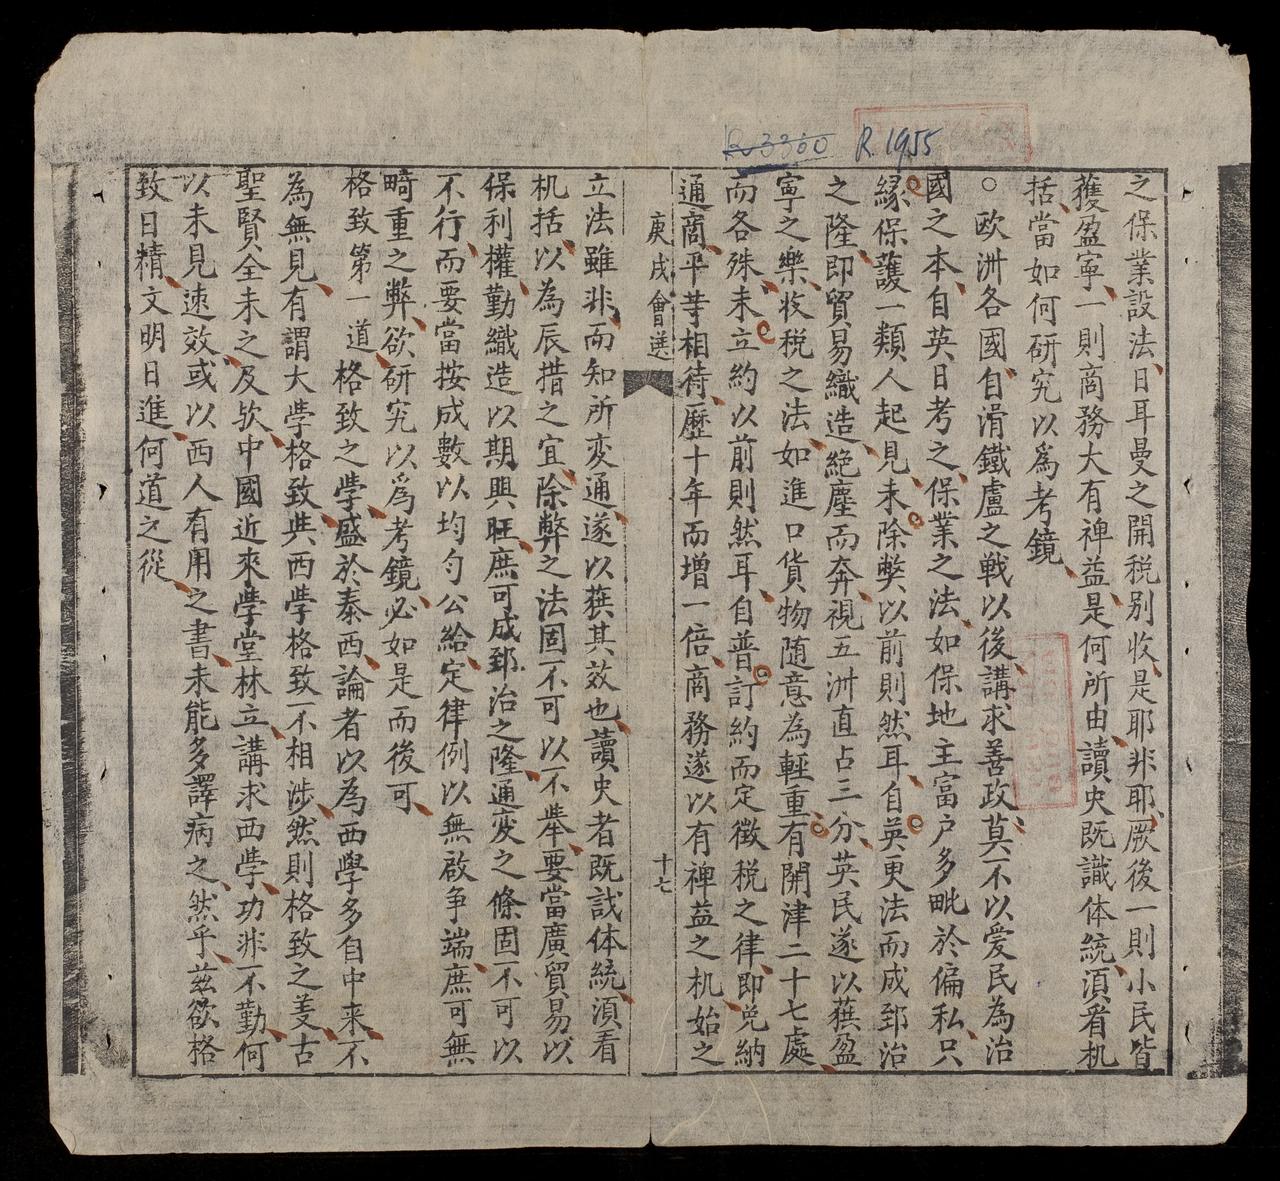 R 3300 R.1955
之保業設法日耳曼之開税别收是耶非耶厥後一則小民皆
獲盈寧一則商務大有裨益是何所由讀史既識体統湏看机
括當如何研究以爲考鏡
○歐洲各國自滑鐵盧之戰以後講求善政莫不以爱民為治
國之本自英日考之保業之法如保地主富户多毗於偏私只
緣保護一類人起見未除獘以前則然耳自英更法而成郅治
之隆即貿易織造絶塵而奔視五洲直占三分英民遂以蕪盈
寧之樂收税之法如進口貨物随意為輕重有開津二十七處
而各殊未立約以前則然耳自普訂約而定徵税之律即免納
通商平等相待歷十年而增一倍商務遂以有裨益之机始之
庚戌會選
十七
立法雖非而知所変通遂以蕪其效也讀史者既識体統湏看
机括以為辰措之宜除弊之法固不可以不舉要當廣貿易以
保利權勤織造以期興旺庶可成郅治之隆通変之條固不可以
不行而要當按成數以均匀公給定律例以無啟争端庶可無
畸重之弊欲研究以爲考鏡必如是而後可
格致第一道 格致之學盛於泰西論者以為西學多自中来不
為無見有謂大學格致與西學格致不相涉然則格致之羑古
聖賢全未之及欤中國近來學堂林立講求西學功非不勤何
以未見速效或以西人有用之書未能多譯病之然乎兹欲格
致日精文明日進何道之從